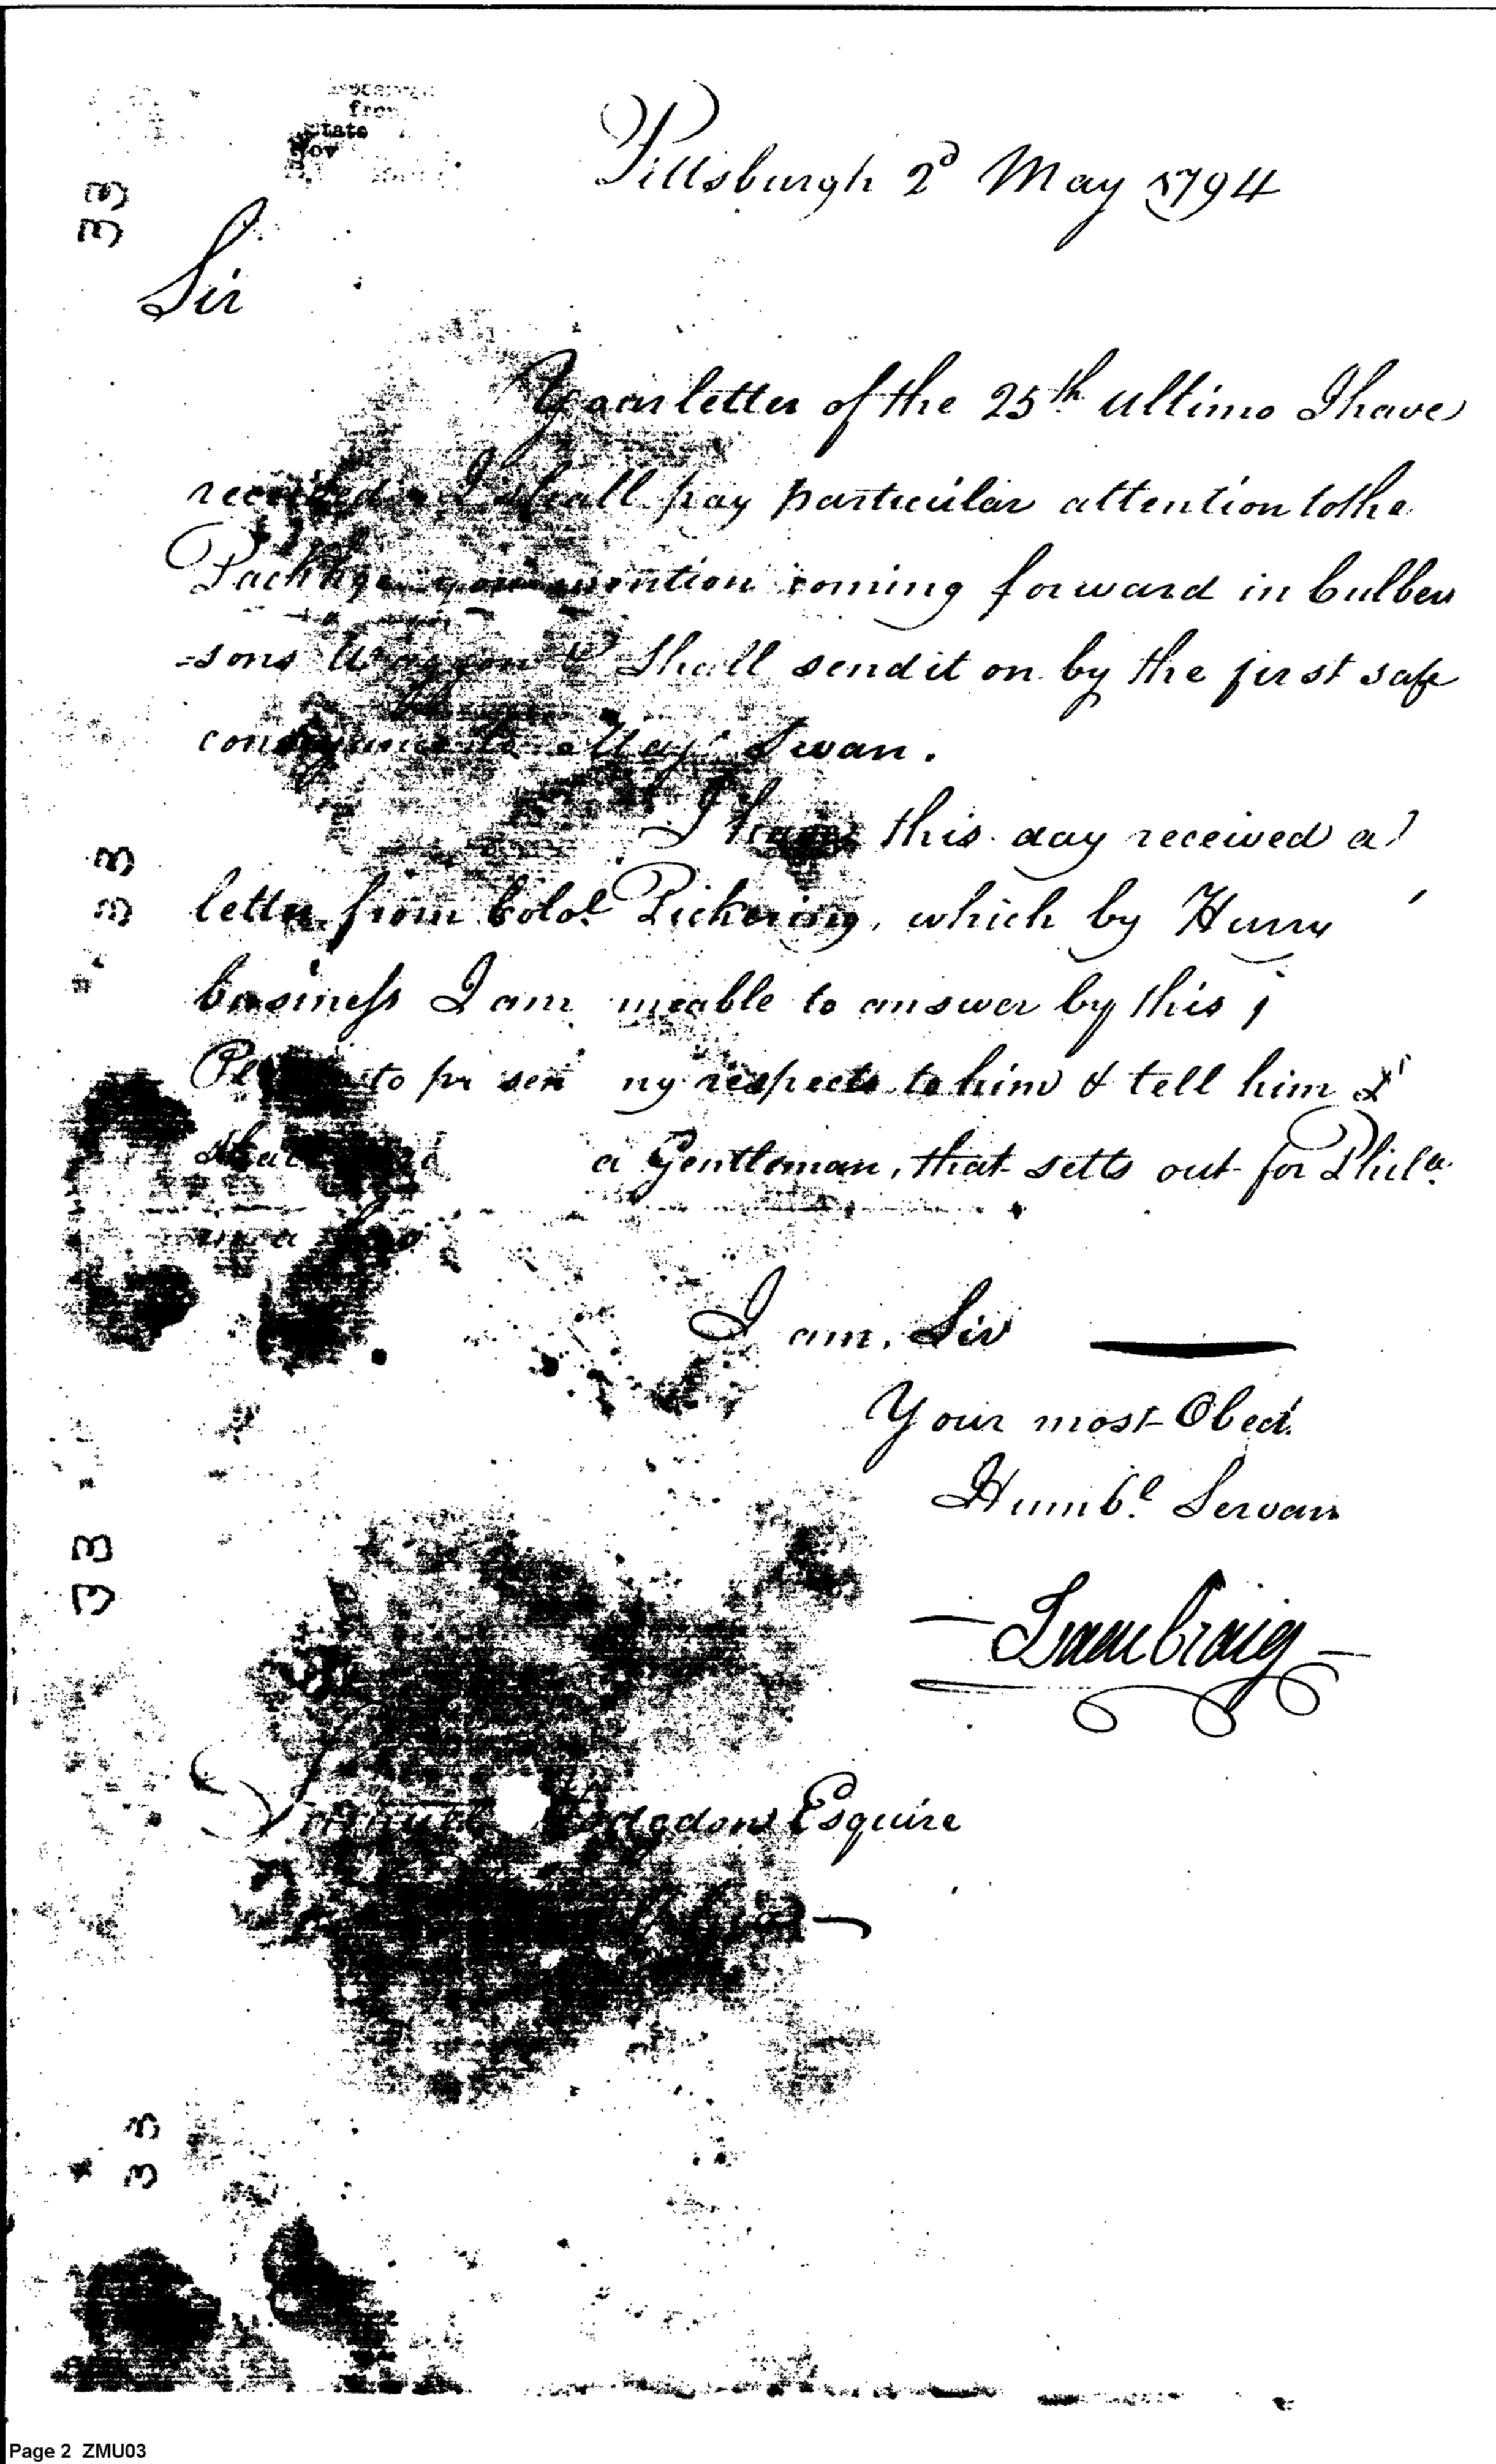 Pittsburgh 2d May 1794
Sir
Your letter of the 25th Ultimo I have
received I shall pay particular attention to the
Package you mention coming forward in Culber
=sons Waggon & Shall send it on by the first safe
conveyance to Majr Swan.
I have this day received a
letter from Colol. Pickering, which by Hurry
business I am unable to answer by this
to present my respects to him & tell him I
shall a Gentleman, that setts out for Phila.
I am, Sir
Your most Obedt.
Humbl. Servan
Isaac Craig
Samuel Hodgdon Esquire
33
33
33
33
Page 2 ZMU03